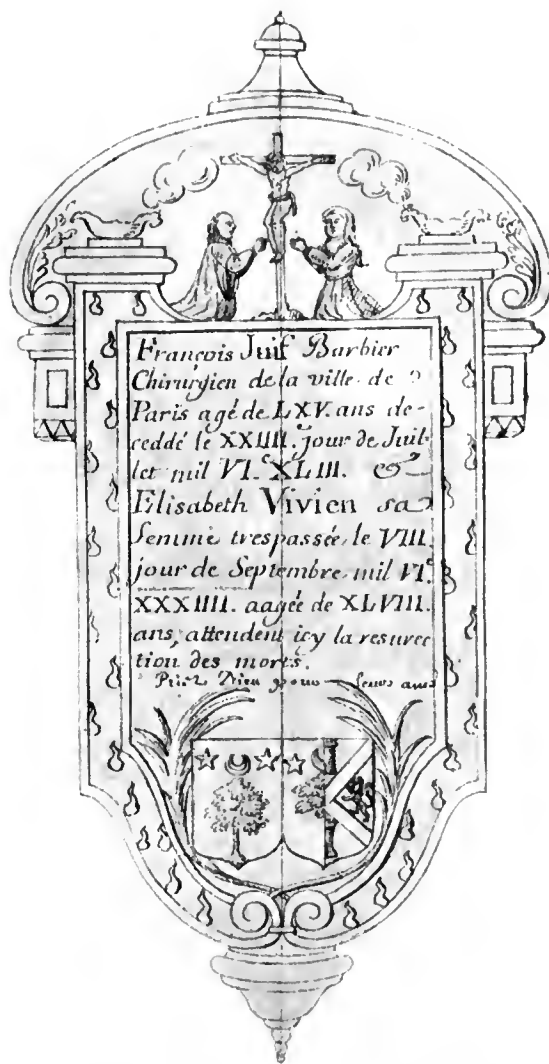 François Juif Barbier
Chirurgien de la ville de
Paris agé de LXV. ans de-
ceddé le XXIIII. jour de Juil-
let mil VI.c XLIII. &
Elisabeth Vivien sa
femme trespassée le VIII.
jour de Septembre mil VI.c
XXXIIII. aagée de XLVIII.
ans, attendent icy la resurec
tion des morts.
Priez Dieu pour leurs ames